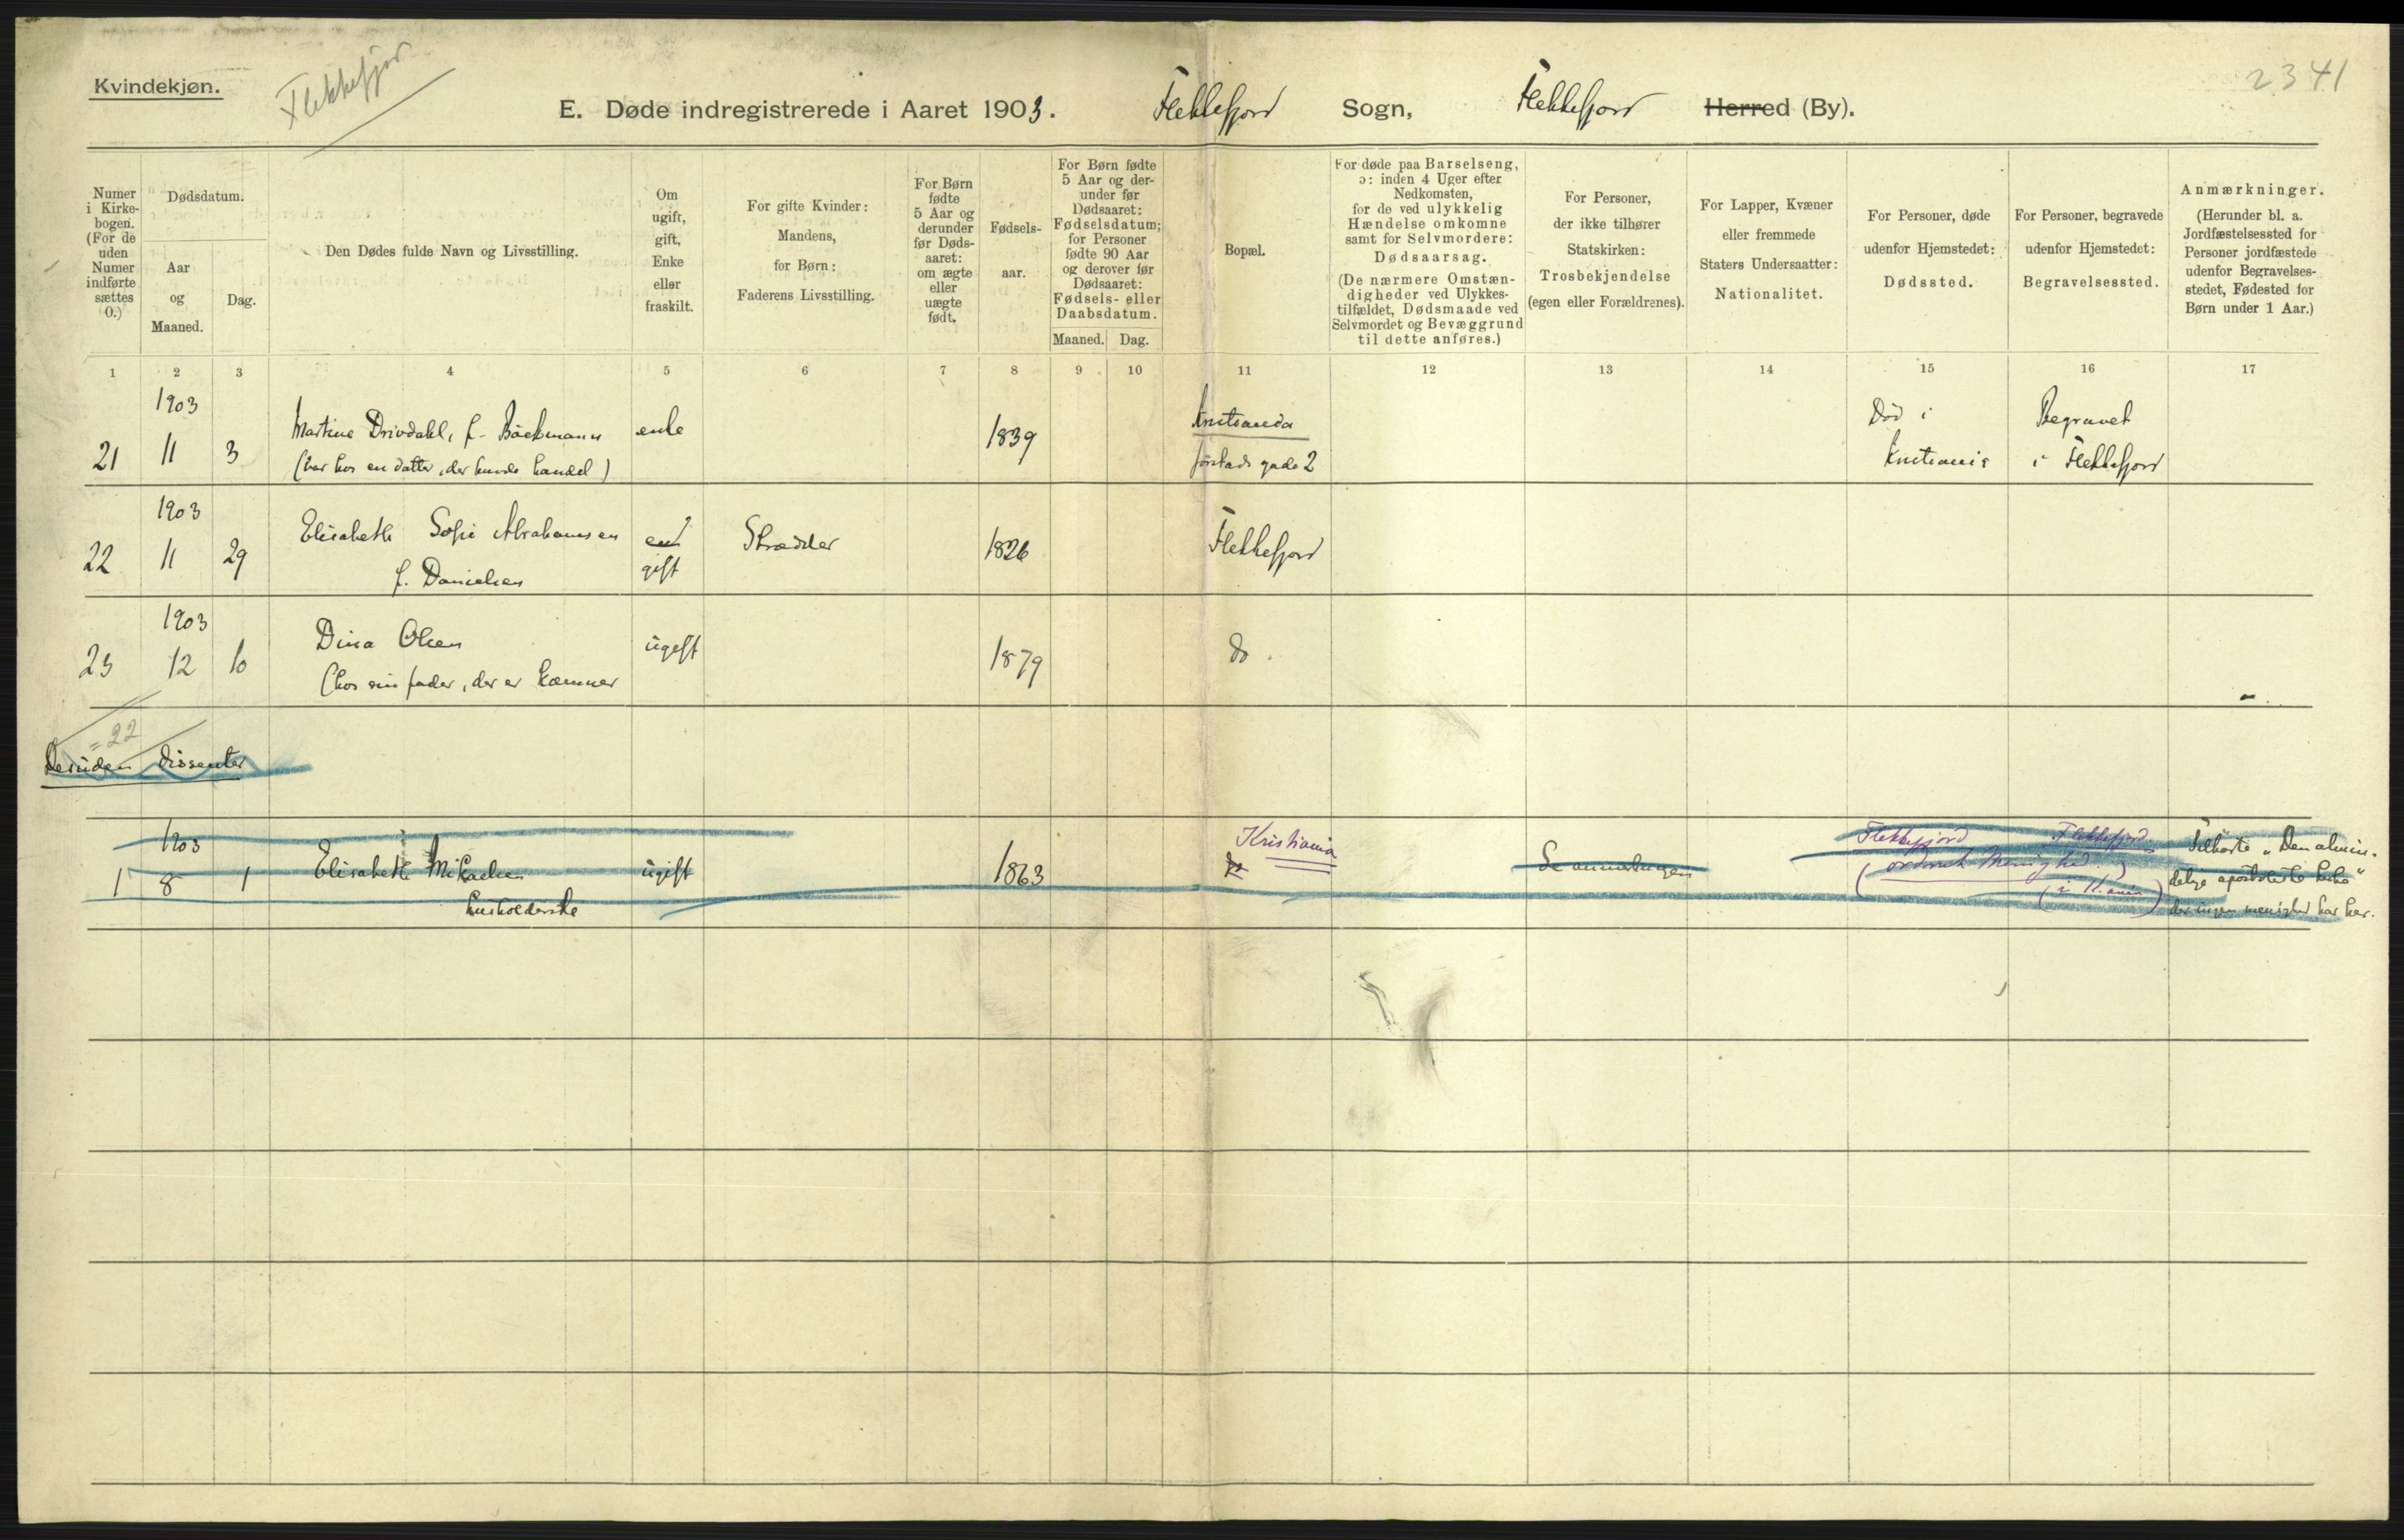 Kvindekjøn.
Flekkefjor
2341
E. Døde indregistrerede i Aaret 1903. Flekkefjord Sogn, Flekkefjord Herred (By).
Numer i Kirkebogen. (For de uden Numer indførte sættes 0.)
Dødsdatum.
Aar og Maaned.
Dag.
Den Dødes fulde Navn og Livsstilling.
Om ugift, gift, Enke eller fraskilt.
For gifte Kvinder: Mandens, for Børn: Faderens Livsstilling.
For Børn fødte 5 Aar og derunder før Dødsaaret: om ægte eller uægte født.
Fødselsaar.
For Børn fødte 5 Aar og derunder før Dødsaaret: Fødselsdatum; for Personer fødte 90 Aar og derover før Dødsaaret: Fødsels- eller Daabsdatum.
Maaned. Dag.
Bopæl.
For døde paa Barselseng, ɔ: inden 4 Uger efter Nedkomsten, for de ved ulykkelig Hændelse omkomne samt for Selvmordere: Dødsaarsag.
(De nærmere Omstændigheder ved Ulykkestilfældet, Dødsmaade ved Selvmordet og Bevæggrund til dette anføres.)
For Personer, der ikke tilhører Statskirken: Trosbekjendelse (egen eller Forældrenes).
For Lapper, Kvæner eller fremmede Staters Undersaatter: Nationalitet.
For Personer, døde udenfor Hjemstedet: Dødssted.
For Personer, begravede udenfor Hjemstedet: Begravelsessted.
Anmærkninger. (Herunder bl. a. Jordfæstelsessted for Personer jordfæstede udenfor Begravelsesstedet, Fødested for Børn under 1 Aar.)
1 2 3 4 5 6 7 8 9 10 11 12 13 14 15 16 17
1903 Kristiania Død i Begravet
21 11 3 Martine Drivdahl, f. Bäckmann enke 1839
(var hos en datter, der havde handel) gade 2 Kristiania i Flekkefjord
1903
22 11 29 Elisabeth Sofie Abrahamsen gift Skrædder 1826 Flekkefjord
f. Danielsen
1903
23 12 10 Dina Olsen ugift 1879 do.
(hos sin fader, der er kæmner
= 22
Desuden dissenter
1903 Kristiania Flekkefjord Flekkefjord Tilhørte „Den almin-
1 8 1 Elisabeth Mikaelsen ugift 1863 do Se anmerkningen Menighed (i K.ania) delige apostoliske kirke"
husholderske der ingen menighed har her.